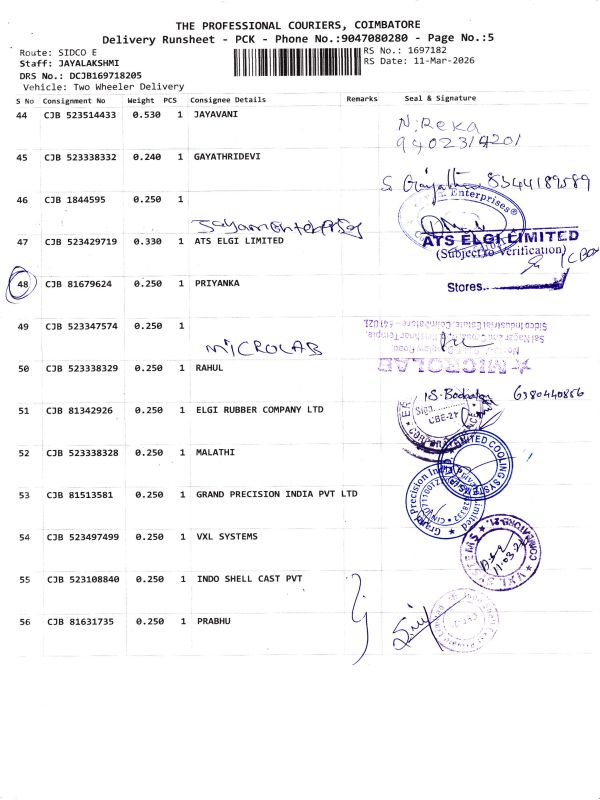 THE PROFESSIONAL COURIERS, COIMBATORE
Delivery Runsheet - PCK - Phone No.:9047080280 - Page No.:5
Route: SIDCO E
RS No.: 1697182
Staff: JAYALAKSHMI
RS Date: 11-Mar-2026
DRS No.: DCJB169718205
Vehicle: Two Wheeler Delivery
S No Consignment No Weight PCS Consignee Details Remarks Seal & Signature
44 CJB 523514433 0.530 1 JAYAVANI
N. Reka
45 CJB 523338332 0.240 1 GAYATHRIDEVI
8344189589
46 CJB 1844595 0.250 1
Enterprises
47 CJB 523429719 0.330 1 ATS ELGI LIMITED
ATS ELGI LIMITED
(Subject to Verification)
48 CJB 81679624 0.250 1 PRIYANKA
Stores.
49 CJB 523347574 0.250 1
Sidco Industrial Estate, Coimbatore - 641 021.
MICROLAB
MICROLAB
50 CJB 523338329 0.250 1 RAHUL
6380440886
51 CJB 81342926 0.250 1 ELGI RUBBER COMPANY LTD
Sign.
CBE-21
52 CJB 523338328 0.250 1 MALATHI
UNITED COOLING SYSTEMS
53 CJB 81513581 0.250 1 GRAND PRECISION INDIA PVT LTD
Grand Precision India
54 CJB 523497499 0.250 1 VXL SYSTEMS
VXL SYSTEMS COIMBATORE-21.
55 CJB 523108840 0.250 1 INDO SHELL CAST PVT
56 CJB 81631735 0.250 1 PRABHU